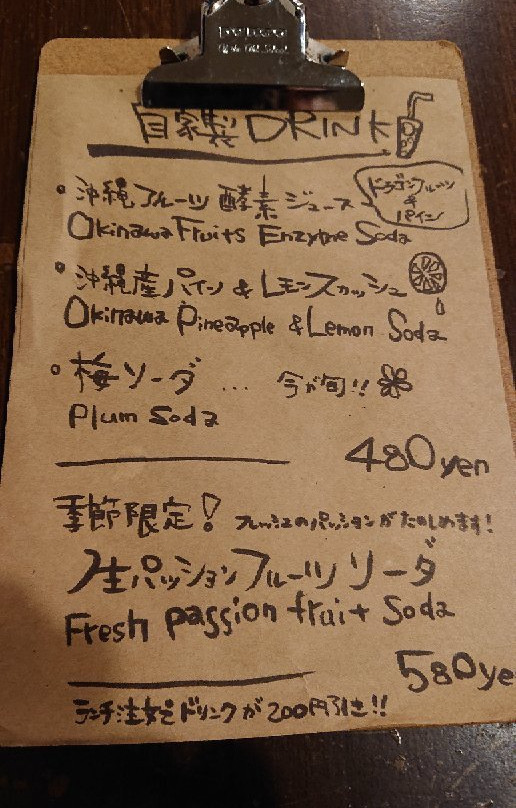 自家製 DRINK
・沖縄フルーツ酵素ジュース
ドラゴンフルーツ
&
パイン
Okinawa Fruits Enzyme Soda
・沖縄産パイン & レモンスカッシュ
Okinawa Pineapple & Lemon Soda
・梅ソーダ … 今が旬!!
Plum Soda
480yen
季節限定! フレッシュのパッションがたのしめます!
生パッションフルーツソーダ
Fresh passion fruit Soda
580ye
ランチ注文でドリンクが200円引き!!